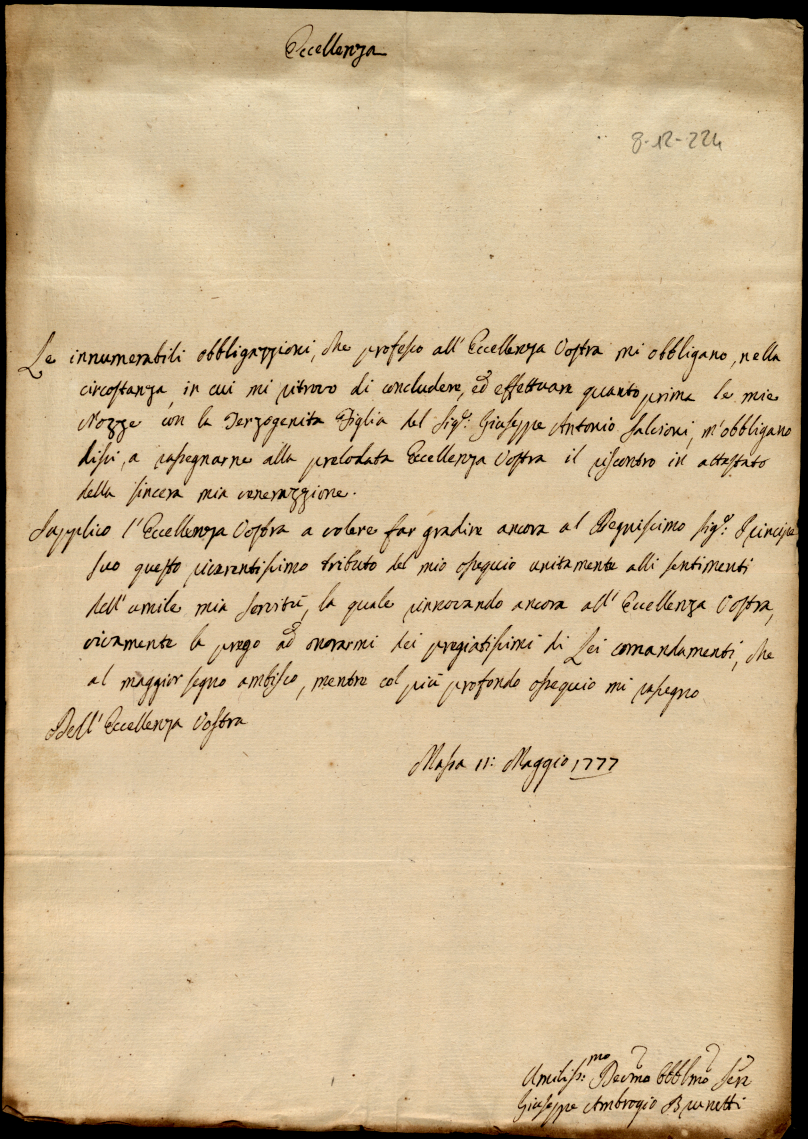 Eccellenza
8-12-224
Le innumerabili obbligazzioni, che professo all'Eccellenza Vostra mi obbligano, nella
circostanza, in cui mi ritrovo di concludere, ed effettuare quanto prima le mie
Nozze con la Terzogenita Figlia del Sigr: Giuseppe Antonio Salvioni, m'obbligano
dissi, a rassegnarne alla prelodata Eccellenza Vostra il riscontro in attestato
della sincera mia venerazzione.
Supplico l'Eccellenza Vostra a volere far gradire ancora al Degnissimo Sigr: Principe
suo questo riverentissimo tributo del mio ossequio unitamente alli sentimenti
dell'umile mia servitù, la quale rinnovando ancora all'Eccellenza Vostra,
vivamente la prego ad onorarmi dei pregiatissimi di Lei comandamenti, che
al maggior segno ambisco, mentre col più profondo ossequio mi rassegno
Dell'Eccellenza Vostra
Massa 11: Maggio 1777
Umiliss:mo Devmo Obblmo Serr
Giuseppe Ambrogio Brunetti